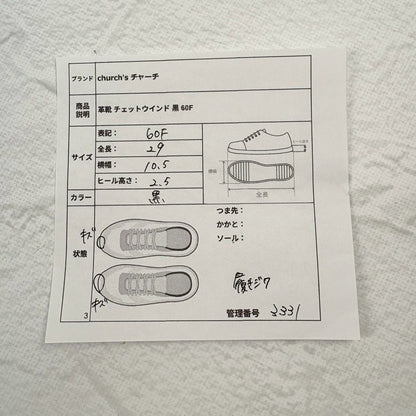 ブランド church's チャーチ
商品説明 革靴 チェットウインド 黒 60F
サイズ
表記： 60F
全長： 29
横幅： 10.5
ヒール高さ： 2.5
横幅
全長
カラー 黒
状態
キズ
キズ
つま先：
かかと：
ソール：
履きジワ
3
管理番号 3331